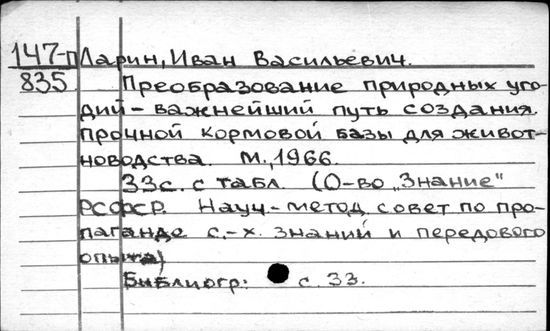 147-П Ларин, Иван Васильевич.
835 Преобразование природных уго-
дий - важнейший путь создания
прочной кормовой базы для живот-
новодства. М., 1966.
33с. с табл. (О-во „Знание"
РСФСР. Науч.-метод. совет по про-
паганде с.-х. знаний и передового
опыта)
Библиогр: с. 33.